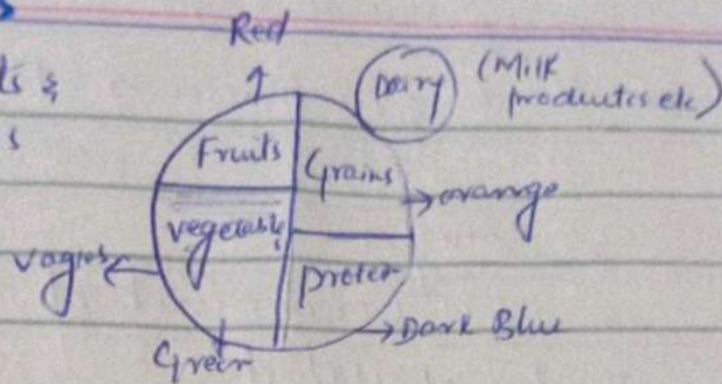 Red
Dairy (Milk
productes etc)
Fruits
Grains
→ orange
vegetable
s
vagies ←
protein
→ Dark Blue
Green